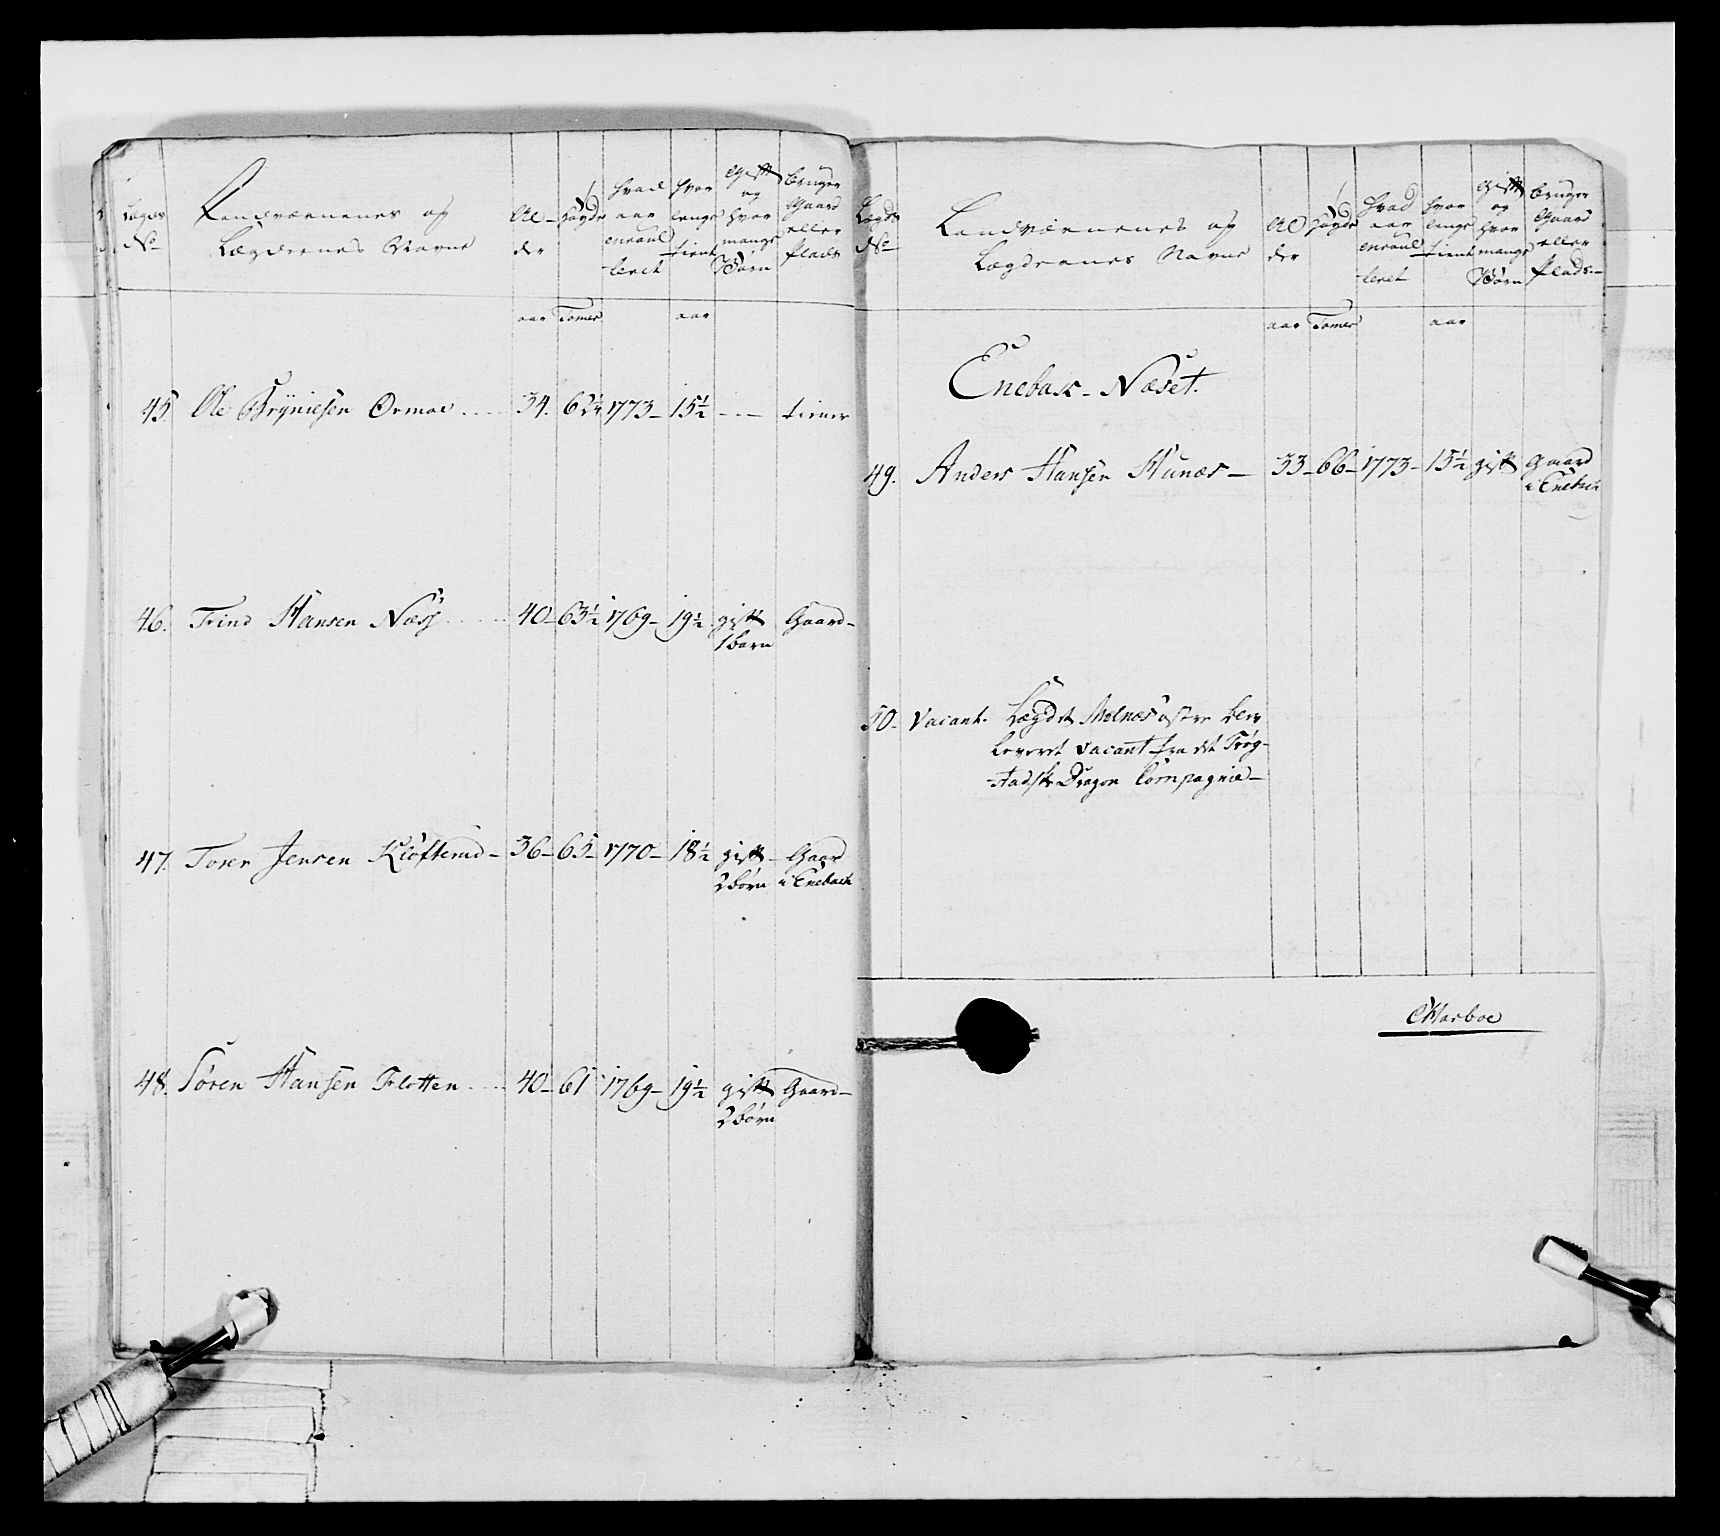 Lægds No
Landværnenes og Lægdernes Navne
Al- der
Høyde
hvad aar enroul- leret
hvor lenge tient
Gift og hvor mange Børn
bruger Gaard eller Plads
aar Tomer aar
45. Ole Brÿniesen Ormoe 34. 62½ 1773 - 15½ - - - tiener
46. Trind Hansen Næss 40 - 63½ 1769 - 19½ gift Gaard -
1 barn
47. Torer Jensen Kløfterud - 36 - 65 - 1770 - 18½ gift - Gaar
2 børn i Eneback
48. Søren Hansen Flotten 40 - 61 1769 - 19½ gift Gaard -
2 børn
Lægds No
Landværnenes og Lægdernes Navne
Al der
Høyde
hvad aar enroul- leret
hvor lenge tient
gift og hvor mange Børn
bruger Gaard eller Plads -
aar Tomer aar
Enebak - Næset.
49. Anders Hansen - 33 - 66 - 1773 - 15½ gift Gaard
i Eneback
50 - Vacant. Lægdet østre blev
leveret vacant fra det Trøg-
stadske Dragon Compagnie -
CHarboe